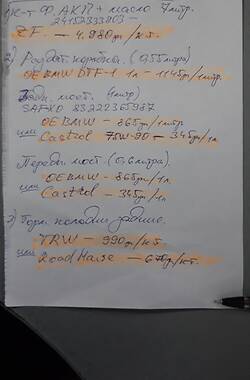 К-т Ф. АКП + масло 7 литр.
24152333903 —
ZF — 4.980гр/к-т.
2) Раздат коробка. (0,55 литра)
OE BMW DTF-1 1л — 1145гр/1литр.
Задн. мост. 1литр)
SAF-XO 83222365987
OE BMW — 865гр/1литр.
или Castrol 75W-90 — 345гр/1л.
Передн. мост. (0,6 литра).
OE BMW — 865гр/1л
или Castrol — 345гр/1л.
3) Торм колодки задние.
TRW — 990гр/к-т.
или Road House — гр/к-т.